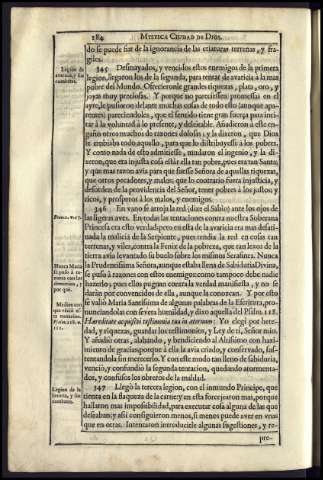 284 MYSTICA CIUDAD DE DIOS.
do se puede fiar de la ignorancia de las criaturas terrenas, y fra-
giles.
345 Desmayados, y vencidos estos enemigos de la primera
legion, llegaron los de la segunda, para tentar de avaricia à la mas
pobre del Mundo. Ofrecieronle grandes riquezas, plata, oro, y
joyas muy preciosas. Y porque no pareciessen promessas en el
ayre, le pusieron delante muchas cosas de todo esto (aunque apa-
rentes) pareciendoles, que el sentido tiene gran fuerça para inci-
tar à la voluntad à lo presente, y deleitable. Añadieron à este en-
gaño otros muchos de razones dolosas; y la dixeron, que Dios
se embiaba todo aquello, para que lo distribuyesse à los pobres.
Y como nada de esto admitiesse, mudaron el ingenio, y la di-
xeron, que era injusta cosa estàr ella tan pobre, pues era tan Santa;
y que mas razon avia para que fuesse Señora de aquellas riquezas,
que otros pecadores, y malos; que lo contrario fuera injusticia, y
desorden de la providencia del Señor, tener pobres à los justos; y
ricos, y prosperos à los malos, y enemigos.
346 En vano se arroja la red (dize el Sabio) ante los ojos de
las ligeras aves. En todas las tentaciones contra nuestra Soberana
Princesa era esto verdad; pero en esta de la avaricia era mas desati-
nada la malicia de la Serpiente, pues tendia la red en cosas tan
terrenas, y viles, contra la Fenix de la pobreza, que tan lexos de la
tierra avia levantado su buelo sobre los mismos Serafines. Nunca
la Prudentissima Señora, aunque estaba llena de Sabiduria Divina,
se puso à razones con estos enemigos; como tampoco debe nadie
hazerlo; pues ellos pugnan contra la verdad manifiesta, y no se
daràn por convencidos de ella, aunque la conozcan. Y por esto
se valiò Maria Santissima de algunas palabras de la Escritura, pro-
nunciandolas con severa humildad, y dixo aquella del Psalm. 118.
Hæreditate acquisivi testimonia tua in æternum: Yo elegì por here-
dad, y riquezas, guardar los testimonios, y Ley de tì, Señor mio.
Y añadiò otras, alabando, y bendiciendo al Altissimo con hazi-
miento de gracias, porque à ella la avia criado, y conservado, sus-
tentandola sin merecerlo. Y con este modo tan lleno de sabiduria,
venciò, y confundiò la segunda tentacion, quedando atormenta-
dos, y confusos los obreros de la maldad.
347 Llegò la tercera legion, con el inmundo Principe, que
tienta en la flaqueza de la carne; y en esta forcejaron mas, porque
hallaron mas impossibilidad, para executar cosa alguna de las que
deseaban; y assi consiguieron menos, si menos puede aver en unas
que en otras. Intentaron introducirle algunas sugestiones, y re-
pre-
Legion de
avaricia, y sus
Prover. 1. v. 17.
Nunca Maria
se puso à ra-
zones con los
demonios, y
por què.
Psalm. 118. v.
111.
Legion de la